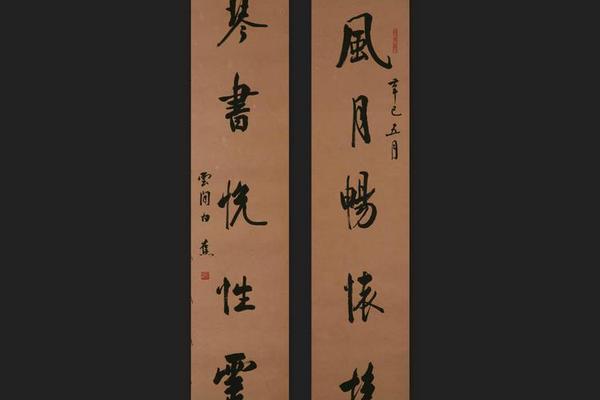 辛巳五月
風月暢懷
琴書悅性靈
雲間白蕉